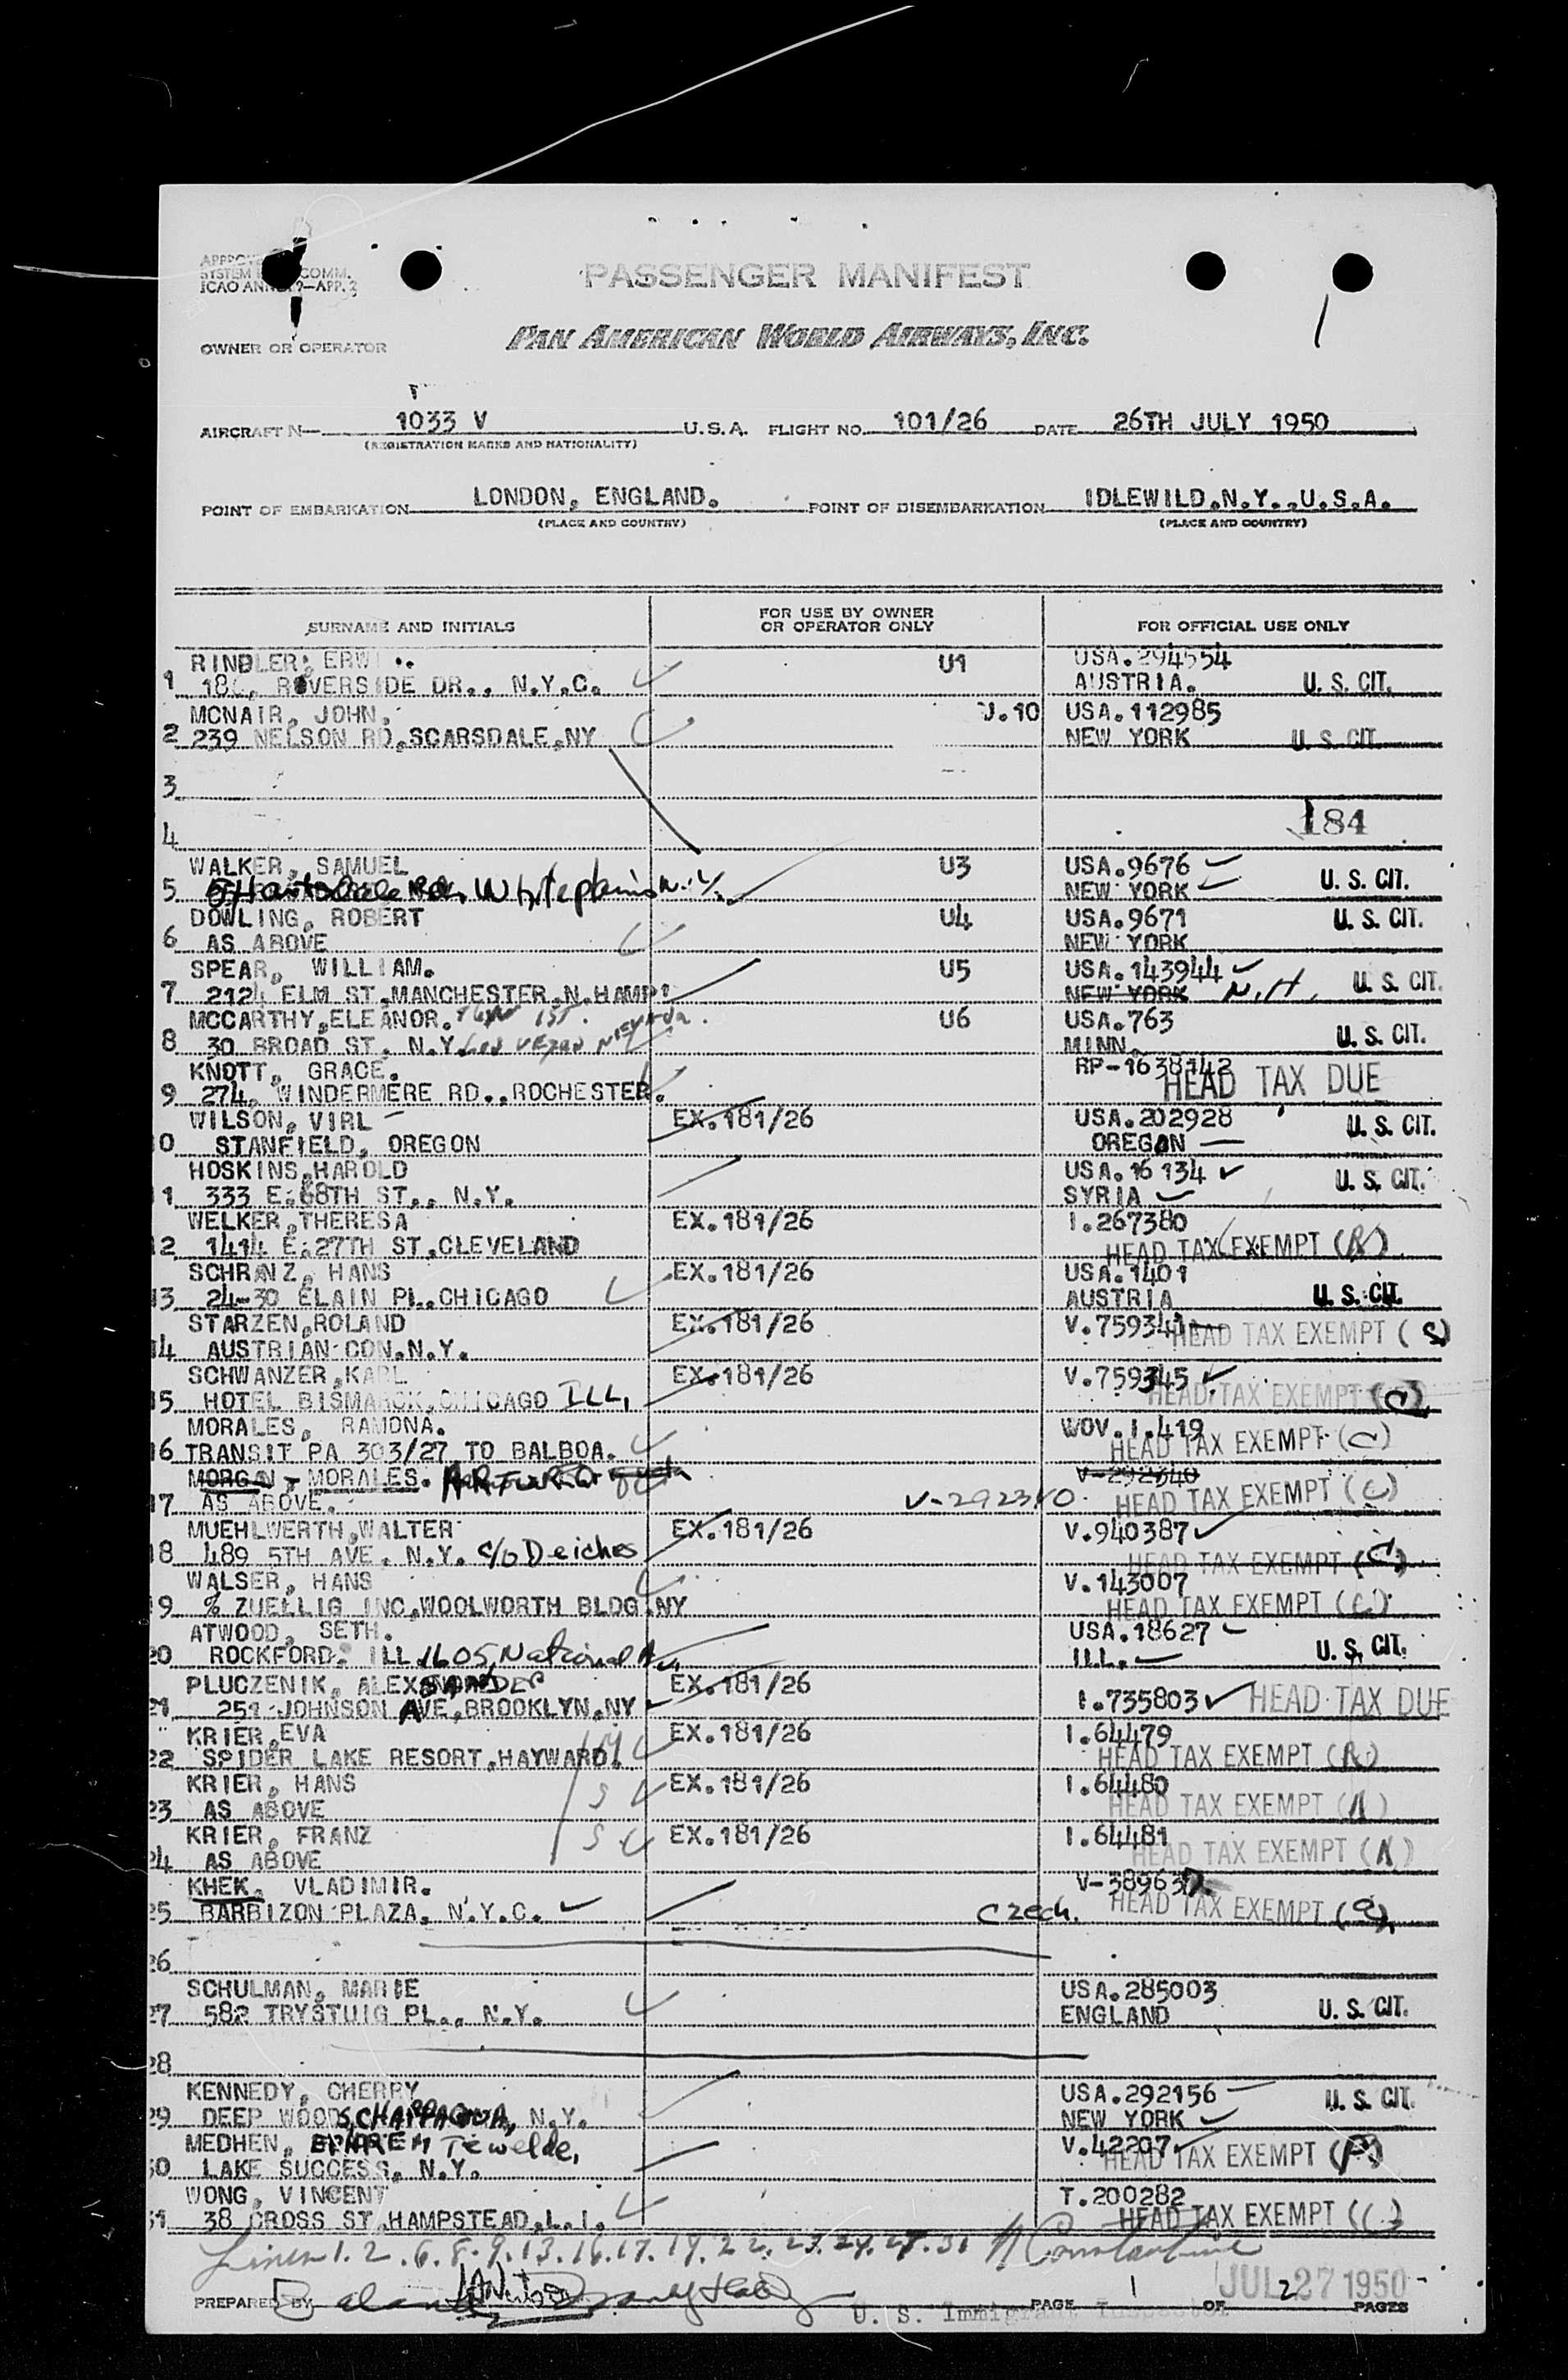 PASSENGER MANIFEST
SYSTEM COMM.
ICAO ANN 9—APP. 3
PAN AMERICAN WORLD AIRWAYS, INC.
OWNER OR OPERATOR
AIRCRAFT N— 1033 V U.S.A. FLIGHT NO. 101/26 DATE 26TH JULY 1950
(REGISTRATION MARKS AND NATIONALITY)
POINT OF EMBARKATION LONDON, ENGLAND. POINT OF DISEMBARKATION IDLEWILD.N.Y.,U.S.A.
(PLACE AND COUNTRY) (PLACE AND COUNTRY)
SURNAME AND INITIALS FOR USE BY OWNER OR OPERATOR ONLY FOR OFFICIAL USE ONLY
RINDLER, U1 USA.294554
1 RIVERSIDE DR., N.Y.C. AUSTRIA. U. S. CIT.
MCNAIR, JOHN. U.10 USA.112985
2 239 NELSON RD,SCARSDALE,NY NEW YORK U. S. CIT.
3
4 184
WALKER, SAMUEL U3 USA.9676
5 Hartsdale Rd, Whiteplains N.Y. NEW YORK U. S. CIT.
DOWLING, ROBERT U4 USA.9671 U. S. CIT.
6 AS ABOVE NEW YORK
SPEAR, WILLIAM. U5 USA.143944
7 2124 ELM ST,MANCHESTER,N.HAMP. NEW YORK N.H. U. S. CIT.
MCCARTHY,ELEANOR. U6 USA.763
8 30 BROAD ST. N.Y. Las Vegas Nevada MINN. U. S. CIT.
KNOTT, GRACE. RP-1638142
9 274, WINDERMERE RD.,ROCHESTER. HEAD TAX DUE
WILSON, VIRL EX.181/26 USA.202928
0 STANFIELD, OREGON OREGON U. S. CIT.
HOSKINS,HAROLD USA.16134
1 333 E.68TH ST., N.Y. SYRIA U. S. CIT.
WELKER,THERESA EX.181/26 I.267380
2 1414 E.27TH ST,CLEVELAND HEAD TAX EXEMPT (R)
SCHRANZ, HANS EX.181/26 USA.1401
3 24-30 ELAIN PL.,CHICAGO AUSTRIA U. S. CIT.
STARZEN,ROLAND EX.181/26 V.759341 HEAD TAX EXEMPT (S)
4 AUSTRIAN CON.N.Y.
SCHWANZER,KARL EX.181/26 V.759345
5 HOTEL BISMARCK,CHICAGO ILL, HEAD TAX EXEMPT (C)
MORALES, RAMONA. WOV.I.419
6 TRANSIT PA 303/27 TO BALBOA. HEAD TAX EXEMPT (C)
MORGAN - MORALES. V-292340
7 AS ABOVE. V-292340 HEAD TAX EXEMPT (C)
MUEHLWERTH,WALTER EX.181/26 V.940387
8 489 5TH AVE. N.Y. c/o Deiches HEAD TAX EXEMPT (C)
WALSER, HANS V.143007
9 % ZUELLIG INC,WOOLWORTH BLDG.NY HEAD TAX EXEMPT (C)
ATWOOD, SETH. USA.18627
20 ROCKFORD. ILL. 1605 National Av, ILL. U. S. CIT.
PLUCZENIK, ALEXSANDER EX.181/26
21 251 JOHNSON AVE,BROOKLYN,NY I.735803 HEAD TAX DUE
KRIER,EVA EX.181/26 I.64479
22 SPIDER LAKE RESORT,HAYWARD. M HEAD TAX EXEMPT (R)
KRIER, HANS S EX.181/26 I.64480
23 AS ABOVE HEAD TAX EXEMPT
KRIER, FRANZ S EX.181/26 I.64481
24 AS ABOVE HEAD TAX EXEMPT
KHEK, VLADIMIR. V-389637
25 BARBIZON PLAZA, N.Y.C. Czech. HEAD TAX EXEMPT
26
SCHULMAN, MARIE USA.285003
27 582 TRYSTUIG PL., N.Y. ENGLAND U. S. CIT.
28
KENNEDY, CHERRY USA.292156 U. S. CIT.
29 DEEP WOODS,CHAPPAQUA, N.Y. NEW YORK
MEDHEN, EPHREM Tewelde, V.42207
30 LAKE SUCCESS, N.Y. HEAD TAX EXEMPT
WONG, VINCENT T.200282
31 38 CROSS ST,HAMPSTEAD,L.I. HEAD TAX EXEMPT (C)
Lines 1. 2. 6. 8. 9. 13. 16. 17. 19. 22. 23. 24. 27. 31 Constantine
JUL 27 1950
PREPARED BY U. S. Immigrant Inspector PAGE 1 OF 2 PAGES